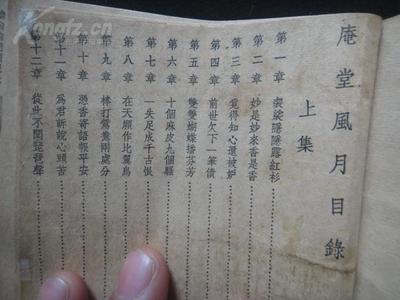 庵堂風月目錄
上集
第一章 袈裟隱隱露紅衫
第二章 妙是妙來香是香
第三章 覓得知心還被妒
第四章 前世欠下一筆債
第五章 雙雙蝴蝶播芬芳
第六章 十個麻皮九個騷
第七章 一失足成千古恨
第八章 在天願作比翼鳥
第九章 棒打鴛鴦兩處分
第十章 憑君寄語報平安
第十一章 為君訴說心頭苦
第十二章 從此不聞琵琶聲